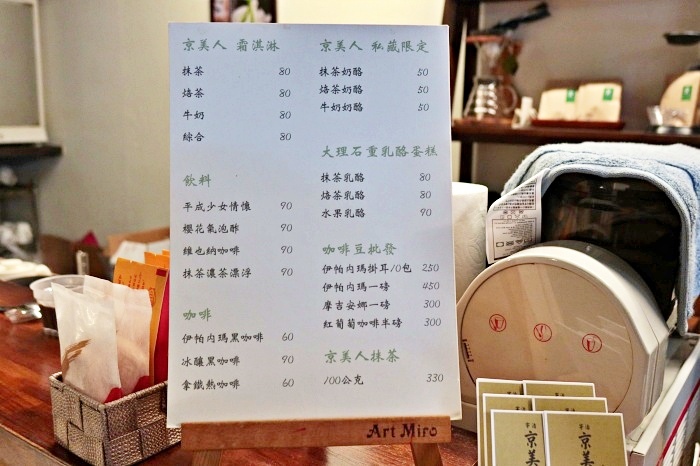 京美人 霜淇淋
抹茶 80
焙茶 80
牛奶 80
綜合 80
飲料
平成少女情懷 90
櫻花氣泡酢 90
維也納咖啡 90
抹茶濃茶漂浮 90
咖啡
伊帕內瑪黑咖啡 60
冰釀黑咖啡 90
拿鐵熱咖啡 60
京美人 私藏限定
抹茶奶酪 50
焙茶奶酪 50
牛奶奶酪 50
大理石重乳酪蛋糕
抹茶乳酪 80
焙茶乳酪 80
水果乳酪 90
咖啡豆批發
伊帕內瑪掛耳/10包 250
伊帕內瑪一磅 450
摩吉安娜一磅 300
紅葡萄咖啡半磅 300
京美人抹茶
100公克 330
Art Miro
京美
京美